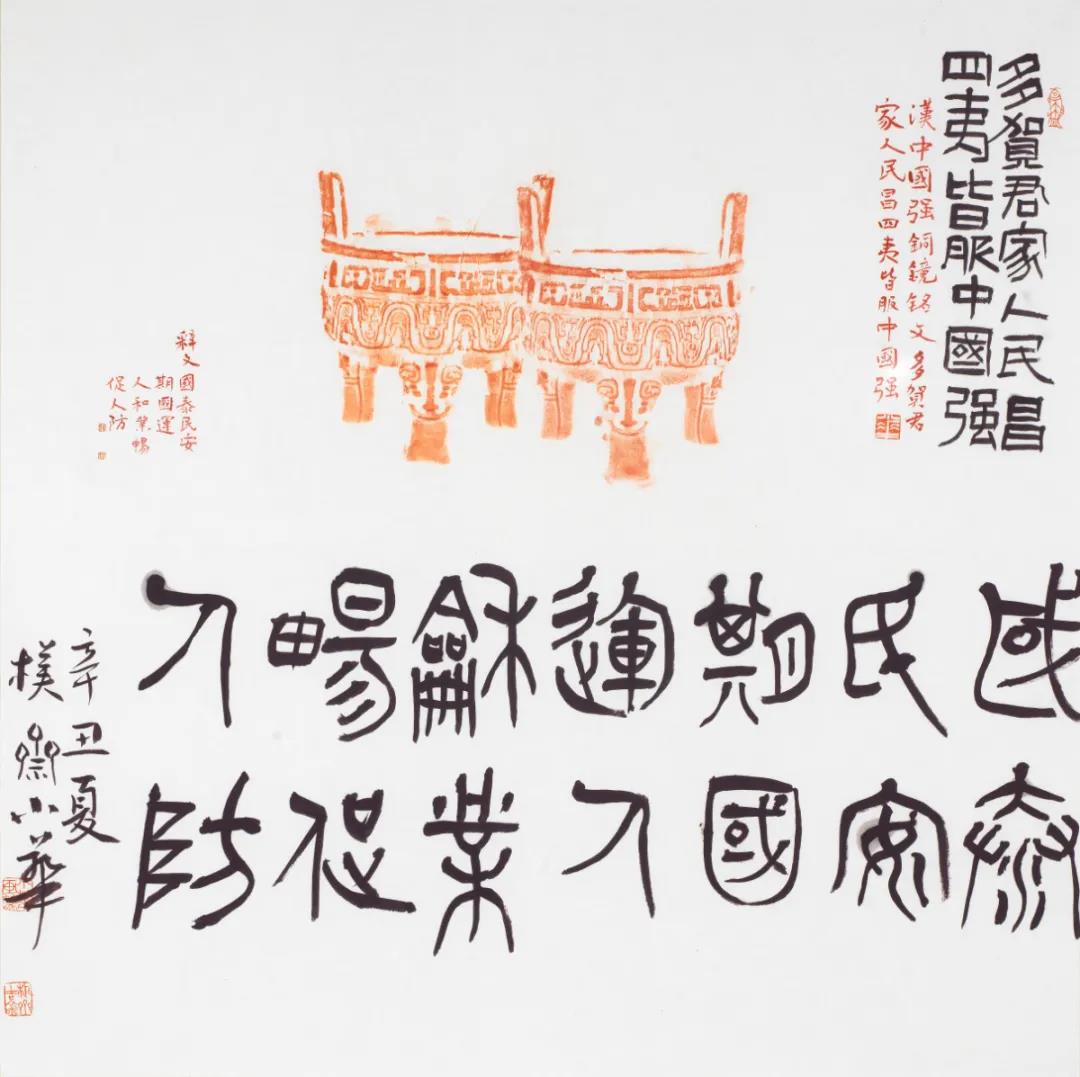 多賀君家人民昌
四夷皆服中國强
漢中國强銅鏡銘文多賀君
家人民昌四夷皆服中國强
释文國泰民安
期国運
人和業暢
促人防
國泰
民安
期國
運人
龢業
暢促
人防
辛丑夏
樸齋小華